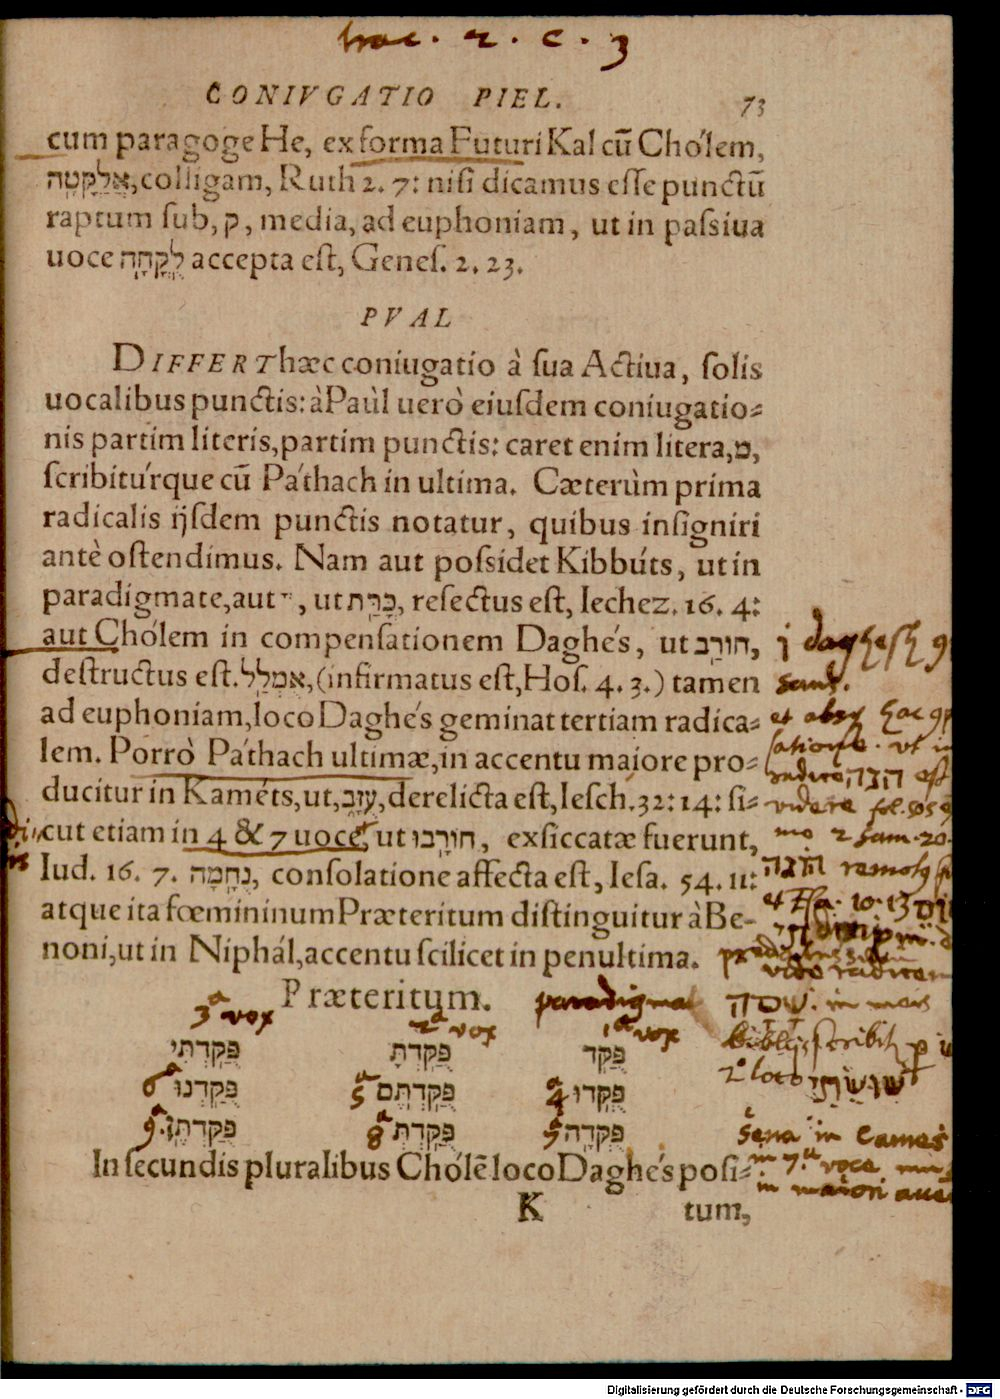 hac . 2 . c . 3
CONIVGATIO PIEL. 73
cum paragoge He, ex forma Futuri Kal cū Chólem,
אֲלַקֳטָה, colligam, Ruth 2. 7: nisi dicamus esse punctū
raptum sub, ק, media, ad euphoniam, ut in passiua
uoce לֻקֳחָה accepta est, Genes. 2. 23.
PVAL
DIFFERT hæc coniugatio à sua Actiua, solis
uocalibus punctis: à Paùl uerò eiusdem coniugatio-
nis partim literis, partim punctis: caret enim litera, מ,
scribitúrque cū Páthach in ultima. Cæterùm prima
radicalis ijsdem punctis notatur, quibus insigniri
antè ostendimus. Nam aut possidet Kibbúts, ut in
paradigmate, aut , ut כָּרַּת, resectus est, Iechez. 16. 4:
aut Chólem in compensationem Daghés, ut חוֹרַב,
destructus est. אֻמְלַל, (infirmatus est, Hos. 4. 3.) tamen
ad euphoniam, loco Daghés geminat tertiam radica-
lem. Porrò Páthach ultimæ, in accentu maiore pro-
ducitur in Kaméts, ut, עֻזָּב, derelicta est, Iesch. 32: 14: si-
cut etiam in 4 & 7 uoce, ut חוֹרָבוּ, exsiccatæ fuerunt,
Iud. 16. 7. נֻחָמָה, consolatione affecta est, Iesa. 54. 11:
atque ita fœmininum Præteritum distinguitur à Be-
noni, ut in Niphál, accentu scilicet in penultima.
Præteritum. paradigma
3ᵃ vox 2ᵃ vox 1ᵃ vox
פֻּקַּדְתִּי פֻּקַּדְתָּ פֻּקַּד
6ᵃ פֻּקַּדְנוּ 5ᵃ פֻּקַּדְתֶּם 4ᵃ פֻּקְּדוּ
9ᵃ. פֻּקַּדְתֶּן 8ᵃ פֻּקַּדְתְּ פֻּקְּדָה
In secundis pluralibus Chólē loco Daghés posi-
K tum,
et absq hac
ut in
הגה est
videre
2 Sam. 20.
הגה
et Esa. 10. 13
vide radicem
שסה . in
scribit
2° loco שושתי
Seua in Cames
in 7.ᵃ voce
in maiori